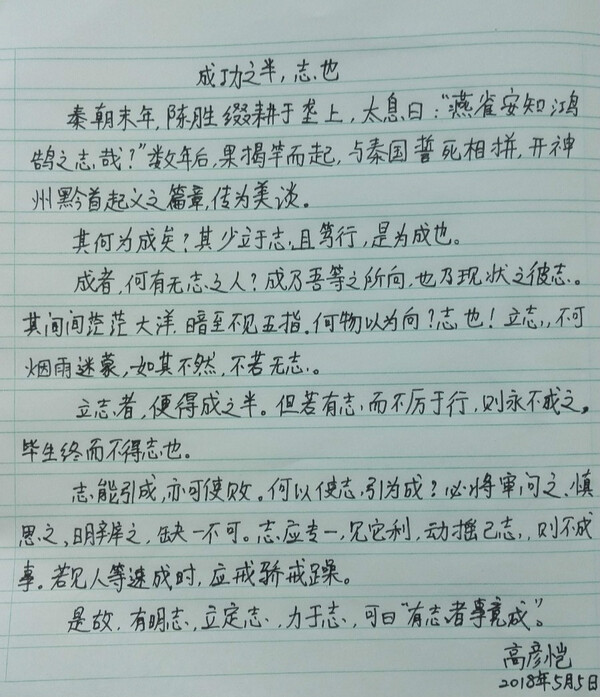 成功之半，志也
秦朝末年，陈胜缀耕于垄上，太息曰："燕雀安知鸿
鹄之志哉？"数年后，果揭竿而起，与秦国誓死相拼，开神
州黔首起义之篇章，传为美谈。
其何为成矣？其少立于志，且笃行，是为成也。
成者，何有无志之人？成乃吾等之所向，也乃现状之彼志。
其间间茫茫大洋，暗至不见五指。何物以为向？志也！立志，不可
烟雨迷蒙，如其不然，不若无志。
立志者，便得成之半。但若有志而不厉于行，则永不成之，
毕生终而不得志也。
志能引成，亦可使败。何以使志引为成？必将审问之、慎
思之、明辨之，缺一不可。志应专一，见它利，动摇己志，则不成
事。若见人等速成时，应戒骄戒躁。
是故，有明志，立定志，力于志，可曰"有志者事竟成"。
高彦恺
2018年5月5日